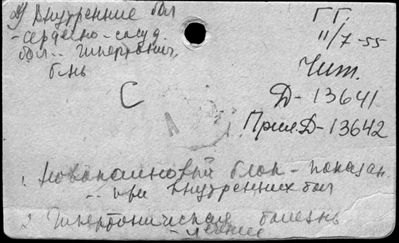 а) Внутренние бол
- сердечно-сосуд.
бол.. Гипертонич.
б-нь
С
Г Г,
11/7-55
Чит.
Д-13641
Прил. Д-13642
1. Новокаиновый блок - показан.
.. при внутренних бол
2. Гипертоническая болезнь
- лечение